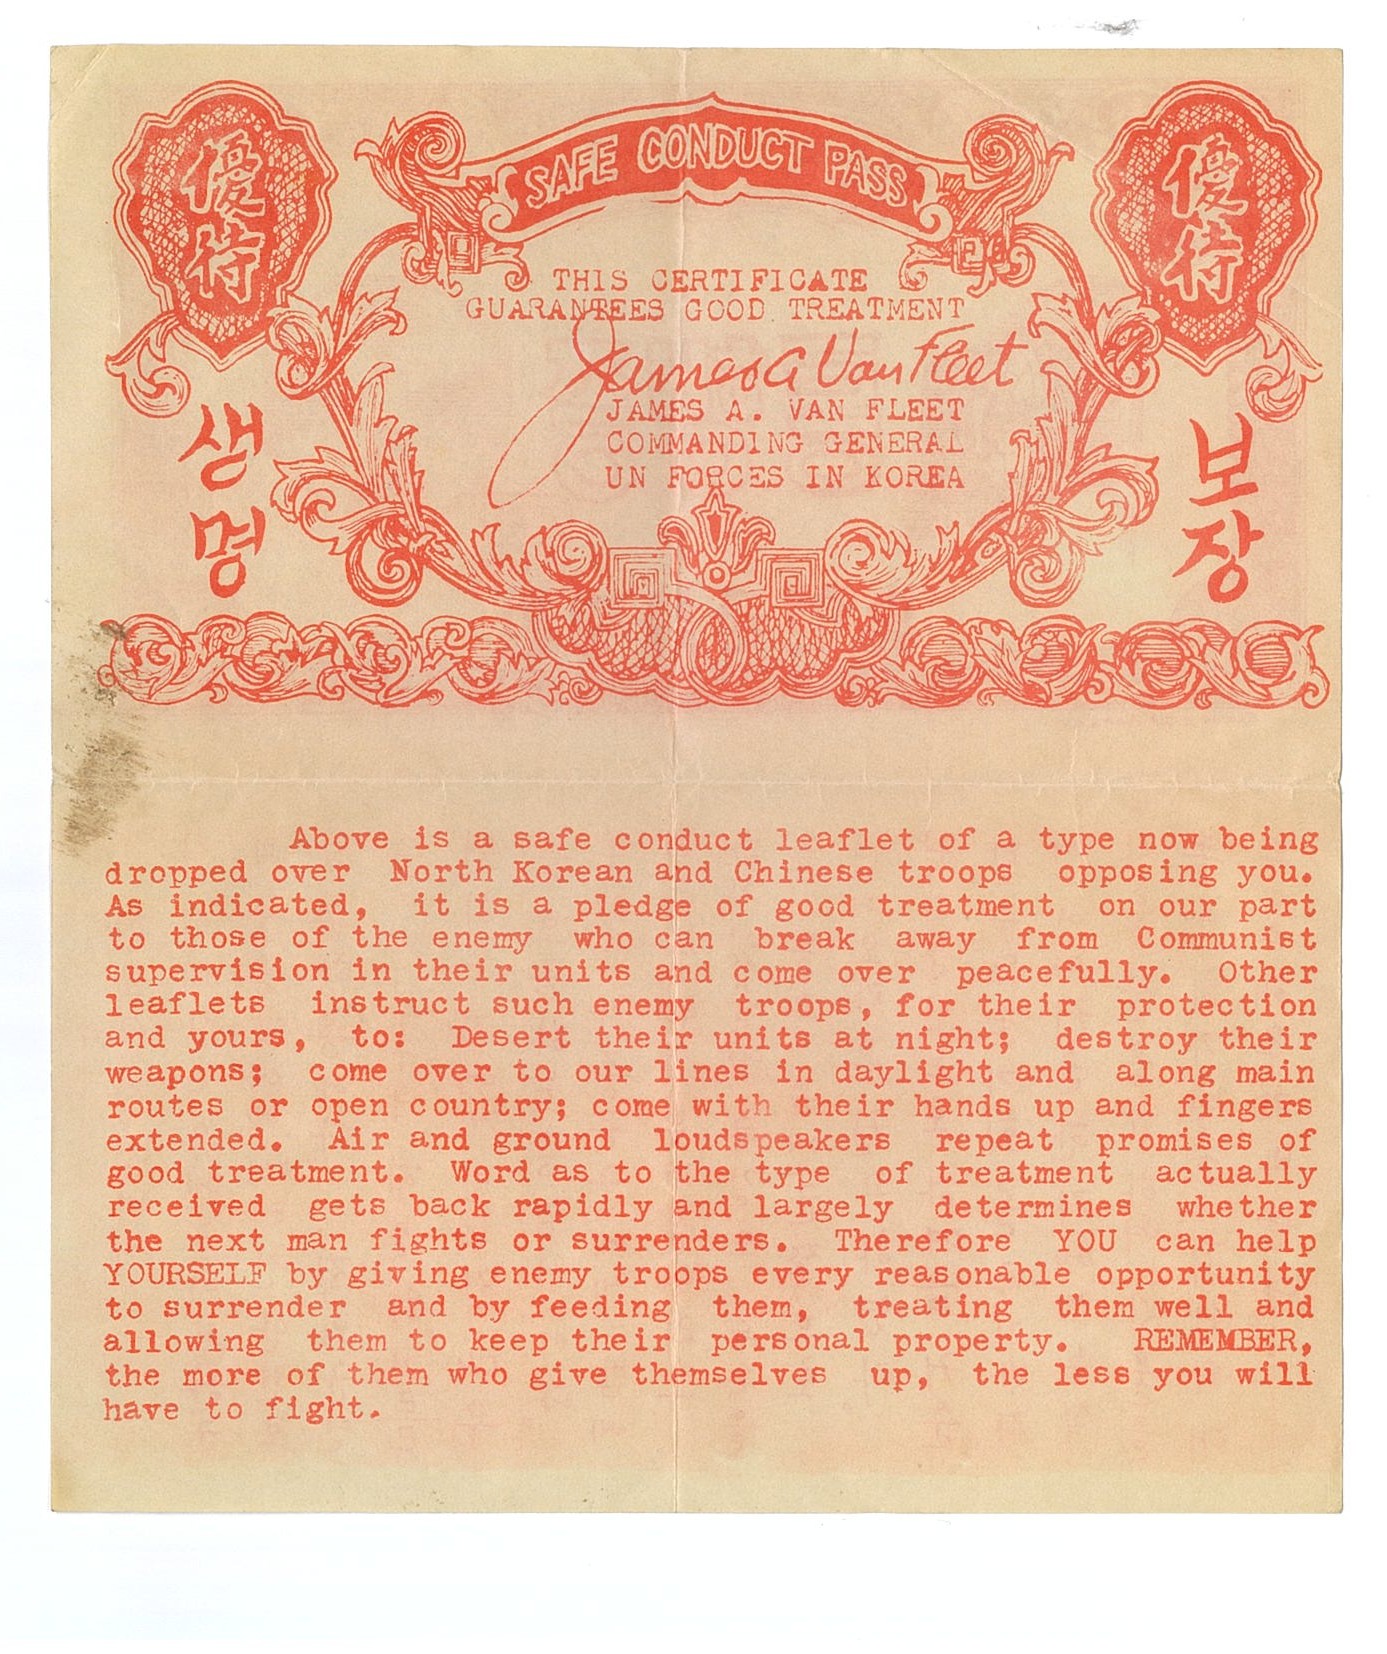 優待
SAFE CONDUCT PASS
優待
THIS CERTIFICATE
GUARANTEES GOOD TREATMENT
James A Van Fleet
JAMES A. VAN FLEET
COMMANDING GENERAL
UN FORCES IN KOREA
생명
보장
Above is a safe conduct leaflet of a type now being
dropped over North Korean and Chinese troops opposing you.
As indicated, it is a pledge of good treatment on our part
to those of the enemy who can break away from Communist
supervision in their units and come over peacefully. Other
leaflets instruct such enemy troops, for their protection
and yours, to: Desert their units at night; destroy their
weapons; come over to our lines in daylight and along main
routes or open country; come with their hands up and fingers
extended. Air and ground loudspeakers repeat promises of
good treatment. Word as to the type of treatment actually
received gets back rapidly and largely determines whether
the next man fights or surrenders. Therefore YOU can help
YOURSELF by giving enemy troops every reasonable opportunity
to surrender and by feeding them, treating them well and
allowing them to keep their personal property. REMEMBER,
the more of them who give themselves up, the less you will
have to fight.